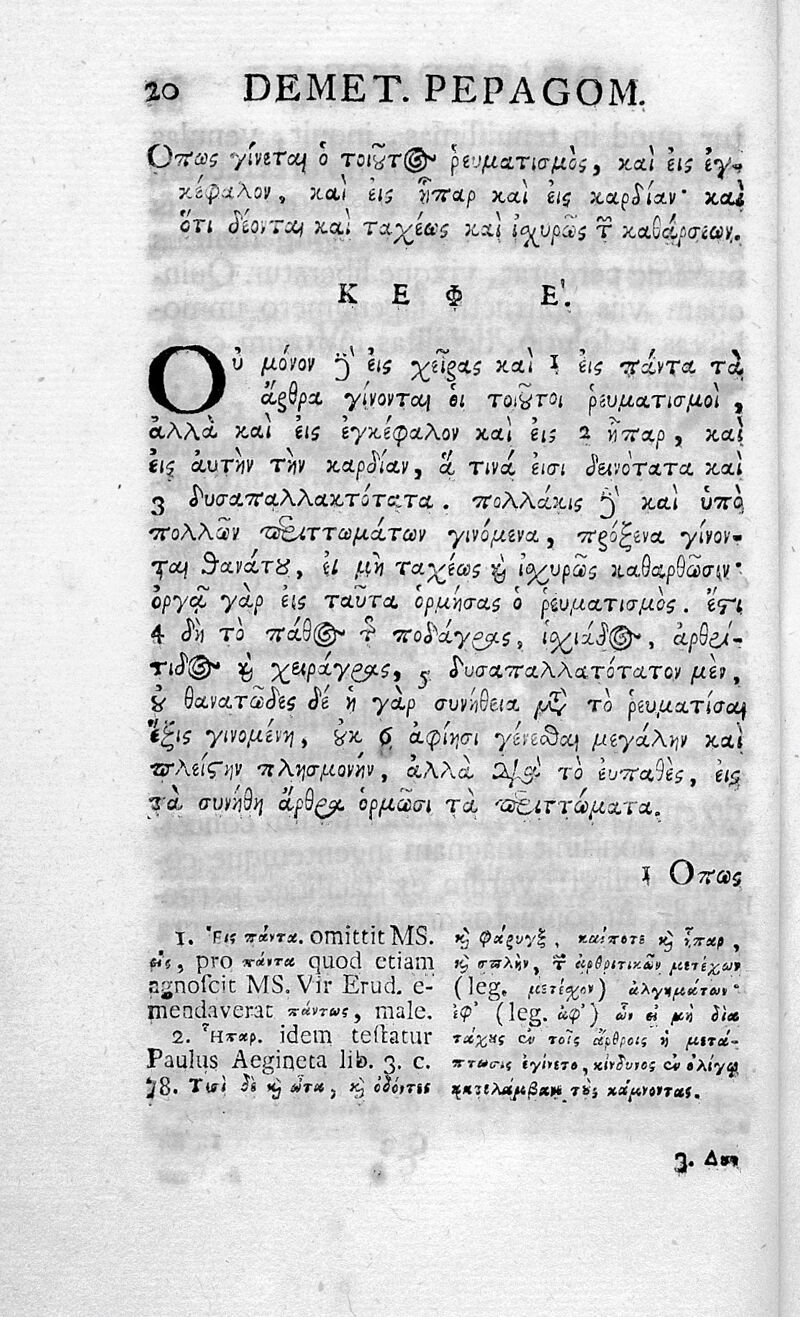 20 DEMET. PEPAGOM.
Οπως γίνεται ὁ τοιοῦτος ῥευματισμὸς, καὶ εἰς ἐγ-
κέφαλον, καὶ εἰς ἧπαρ καὶ εἰς καρδίαν· καὶ
ὅτι δέονται καὶ ταχέως καὶ ἰχυρῶς τῶν καθάρσεων.
ΚΕΦ Ε'.
Οὐ μόνον δὲ εἰς χεῖρας καὶ 1 εἰς πάντα τὰ
ἄρθρα γίνονται οἱ τοιοῦτοι ῥευματισμοὶ,
ἀλλὰ καὶ εἰς ἐγκέφαλον καὶ εἰς 2 ἧπαρ, καὶ
εἰς ἀυτὴν τὴν καρδίαν, ἅ τινά εἰσι δεινότατα καὶ
3 δυσαπαλλακτότατα. πολλάκις δὲ καὶ ὑπὸ
πολλῶν περιττωμάτων γινόμενα, πρόξενα γίνον-
ται θανάτου, εἰ μὴ ταχέως καὶ ἰχυρῶς καθαρθῶσιν·
ὀργᾷ γὰρ εἰς ταῦτα ὁρμήσας ὁ ῥευματισμὸς. ἔστι
4 δὴ τὸ πάθος τῆς ποδάγρας, ἰχιάδος, ἀρθρί-
τιδος καὶ χειράγρας, 5 δυσαπαλλατότατον μὲν,
οὐ θανατῶδες δέ ἡ γὰρ συνήθεια μετὰ τὸ ῥευματίσαι
ἕξις γινομένη, οὐκ 6 ἀφίησι γένεσθαι μεγάλην καὶ
πλείστην πλησμονὴν, ἀλλὰ διὰ τὸ ἐυπαθὲς, εἰς
τὰ συνήθη ἄρθρα ὁρμῶσι τὰ περιττώματα.
1 Οπως
1. Ἐις πάντα. omittit MS.
εἰς, pro πάντα quod etiam
agnoſcit MS. Vir Erud. e-
mendaverat πάντως, male.
2. Ἧπαρ. idem teſtatur
Paulus Aegineta lib. 3. c.
78. Τισὶ δὲ καὶ ὦτα, καὶ ὀδόντες
καὶ φάρυγξ, καίποτε καὶ ἧπαρ,
καὶ σπλὴν, τῶν ἀρθριτικῶν μετέχων
(leg. μετέχον) ἀλγημάτων·
ἐφ' (leg. ἀφ') ὧν εἰ μὴ διὰ
τάχους ἐν τοῖς ἄρθροις ἡ μετά-
πτωσις ἐγίνετο, κίνδυνος ἐν ὀλίγῳ
κατελάμβανε τοὺς κάμνοντας.
3. Δυσ